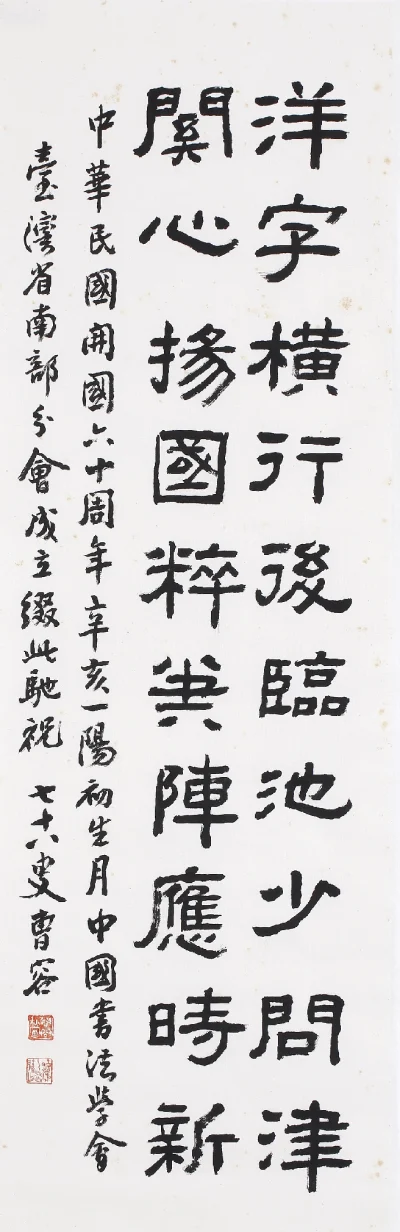 洋字橫行後臨池少問津
關心揚國粹陣應時新
中華民國開國六十周年辛亥一陽初生月中國書法學會
臺灣省南部分會成立綴此馳祝 七十六叟曹容